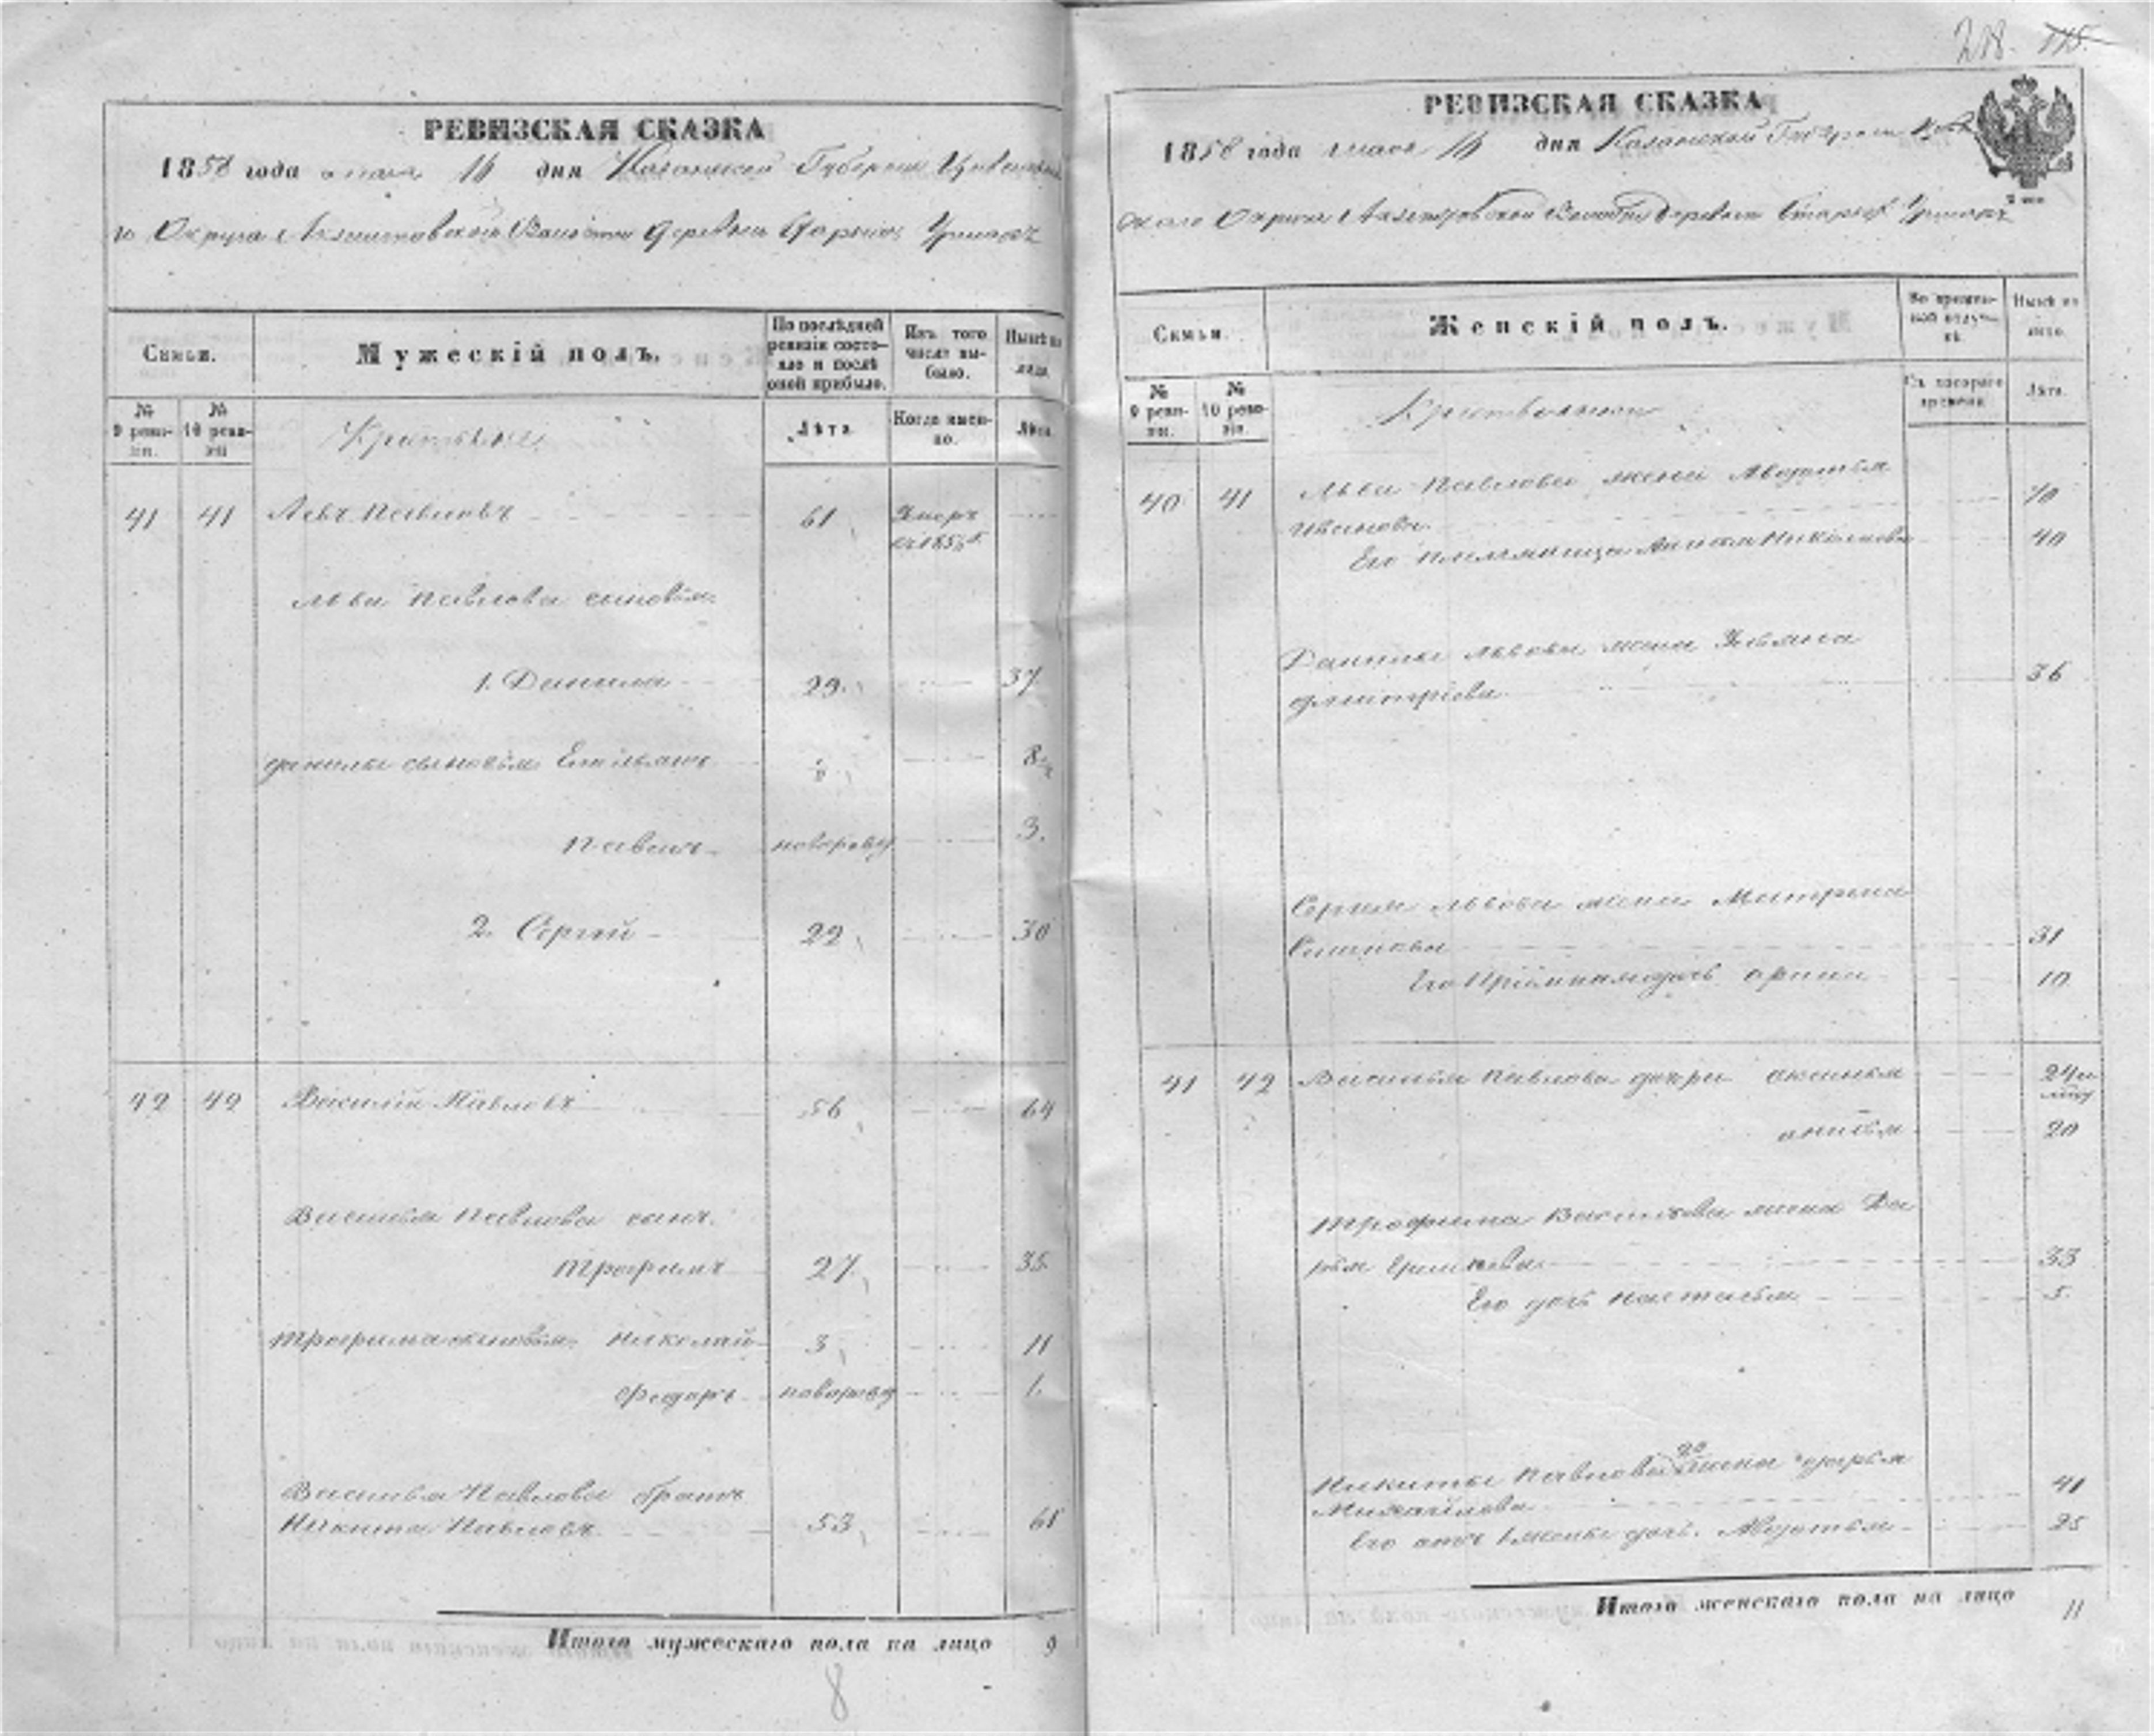 218. 115.
РЕВИЗСКАЯ СКАЗКА
1858 года мая 16 дня Казанской Губернии Цивильска
го Округа Волости деревни Старыхъ Урмаръ
Семьи.
Мужескій полъ.
По послѣдней ревизіи состояло и послѣ оной прибыло.
Изъ того числа выбыло.
Нынѣ на лицо.
№ 9 ревизіи.
№ 10 ревизіи
Крестьяне
Лѣта
Когда именно.
Лѣта.
41 41 Левъ Павловъ 61 Умеръ въ 185
Льва Павлова сыновья
1. Данила 29. 37.
Данилы сыновья Емельянъ 8
Павелъ новорожд 3.
2. Сергей 22 30
42 42 Василій Павловъ 56 64
Василья Павлова сынъ
Трофимъ 27. 35.
Трофима сыновья Николай 3 11
Федоръ новорожд 1.
Василья Павлова братъ
Никита Павловъ 53 61
Итого мужескаго пола на лицо 9
8
РЕВИЗСКАЯ СКАЗКА
1858 года мая 16 дня Казанской Губернии
скаго Округа Волости деревни Старыхъ Урмаръ
Семьи.
Женскій полъ.
Во временной отлучкѣ.
Нынѣ на лицо.
№ 9 ревизіи.
№ 10 ревизіи.
Съ котораго времени.
Лѣта.
40 41 Льва Павлова жена Авдотья
Иванова 70
Его племянница Николаева 40
Данилы Львова жена Ульяна
Дмитріева 36
Сергея Львова жена Матрена
31
Его дочь Арина 10
41 42 Василья Павлова дочери Аксинья 24
20
Трофима Васильева жена Да
рья 33
Его дочь Настасья 5.
Никиты Павлова жена Дарья
Михайлова 41
Его отъ 1 жены дочь Авдотья 25
Итого женскаго пола на лицо 11